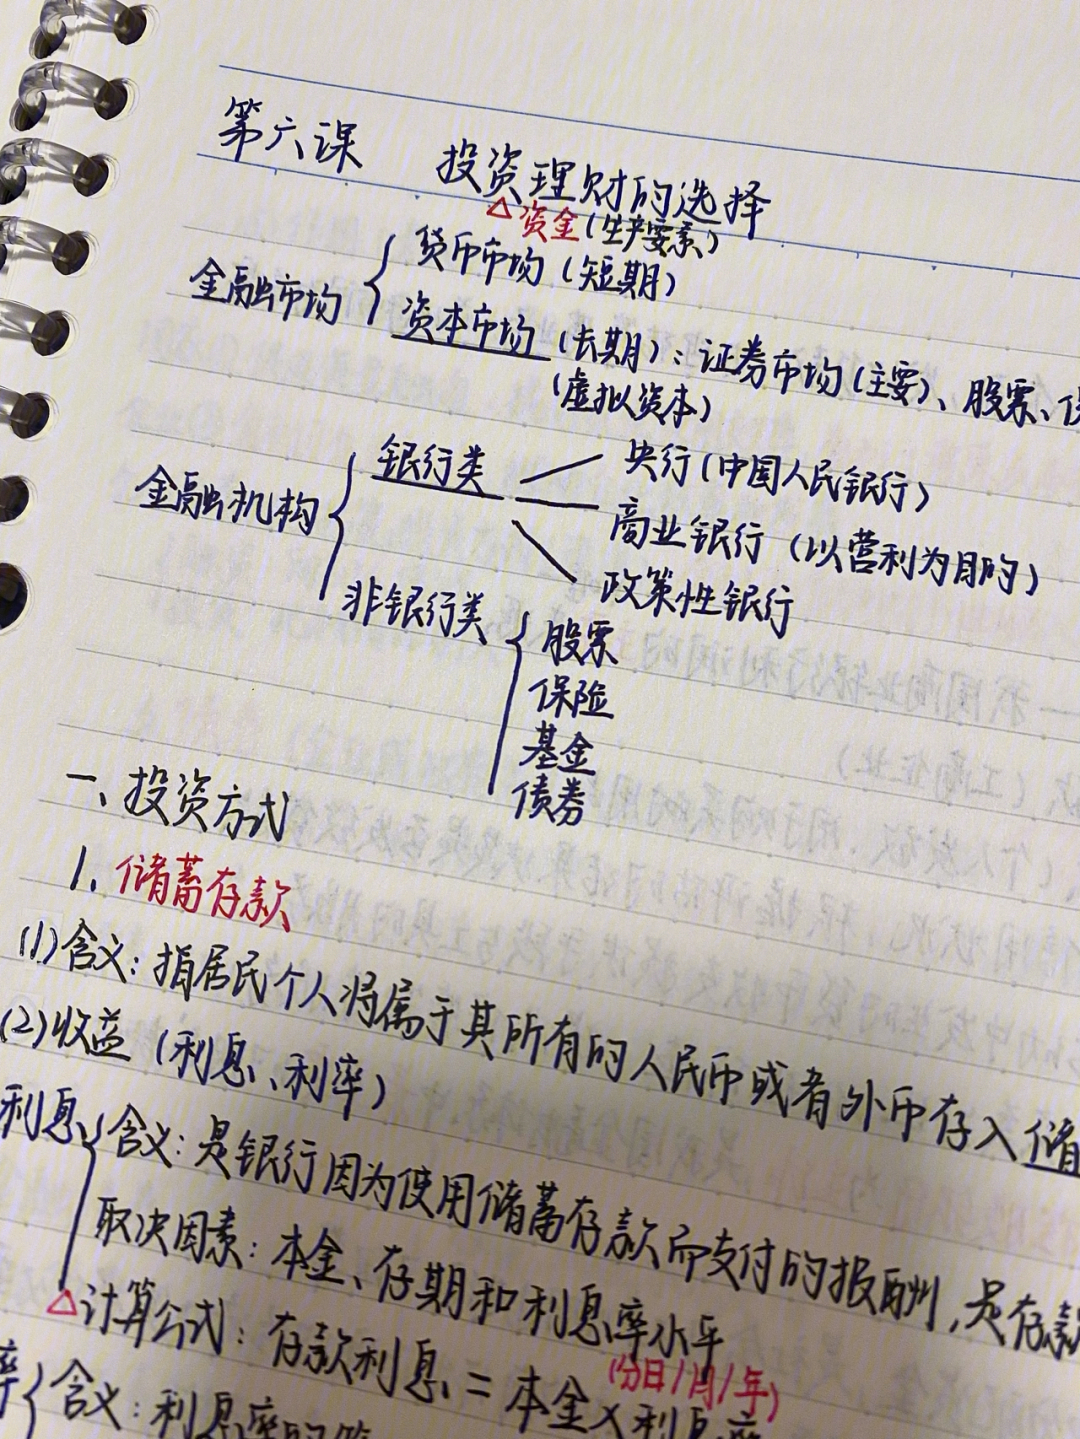 第六课 投资理财的选择
△资金(生产要素)
金融市场 货币市场(短期)
资本市场(长期):证券市场(主要)、股票、
(虚拟资本)
金融机构 银行类 央行(中国人民银行)
商业银行(以营利为目的)
政策性银行
非银行类 股票
保险
基金
债券
一、投资方式
1、储蓄存款
(1)含义:指居民个人将属于其所有的人民币或者外币存入储
(2)收益(利息、利率)
利息 含义:是银行因为使用储蓄存款而支付的报酬,是存款
取决因素:本金、存期和利息率水平
△计算公式:存款利息=本金×利息率
(分日/月/年)
率 含义:利息率的简